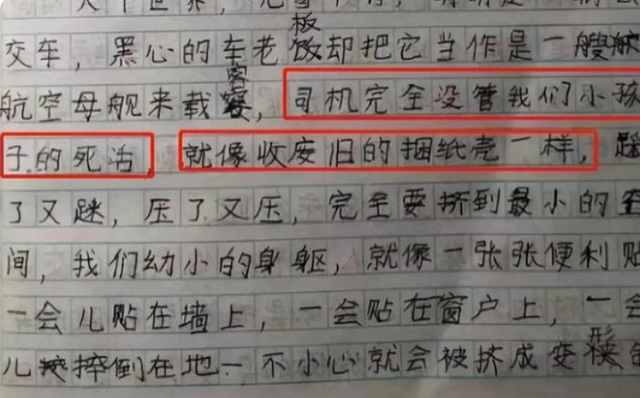 交车，黑心的车老板却把它当作是一艘航
航空母舰来载客，司机完全没管我们小孩
子的死活，就像收废旧的捆纸壳一样，跺
了又跺，压了又压，完全要挤到最小的空
间，我们幼小的身躯，就像一张张便利贴
一会儿贴在墙上，一会贴在窗户上，一会
儿摔倒在地一不小心就会被挤成变形